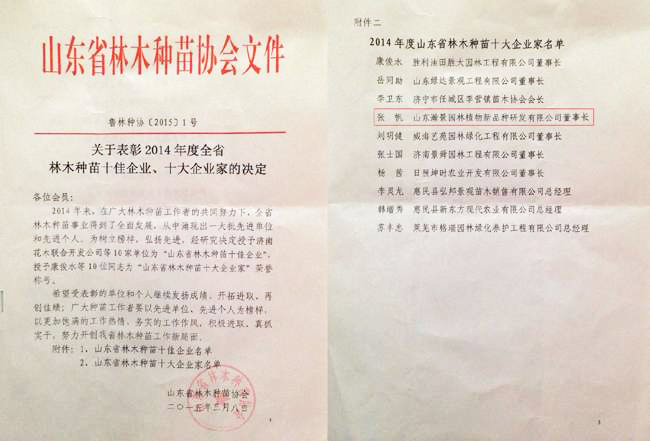 山东省林木种苗协会文件
鲁林种协〔2015〕1号
关于表彰2014年度全省
林木种苗十佳企业、十大企业家的决定
各位会员：
2014年来，在广大林木种苗工作者的共同努力下，全省
林木种苗事业得到了全面发展，从中涌现出一大批先进单位
和先进个人。为树立榜样，弘扬先进，经研究决定授予济南
花木联合开发公司等10家单位为“山东省林木种苗十佳企业”，
授予康俊水等10位同志为“山东省林木种苗十大企业家”荣誉
称号。
希望受表彰的单位和个人继续发扬成绩，开拓进取，再
创佳绩；广大种苗工作者要以先进单位、先进个人为榜样，
以更加饱满的工作热情、务实的工作作风，积极进取，真抓
实干，努力开创我省林木种苗工作新局面。
附件：1、山东省林木种苗十佳企业名单
2、山东省林木种苗十大企业家名单
山东省林木种苗协会
二〇一五年二月八日
1
附件二
2014年度山东省林木种苗十大企业家名单
康俊水 胜利油田胜大园林工程有限公司董事长
岳同勋 山东绿达景观工程有限公司董事长
李卫东 济宁市任城区李营镇苗木协会会长
张帆 山东瀚景园林植物新品种研发有限公司董事长
刘明健 威海艺苑园林绿化工程有限公司董事长
张士国 济南景舜园林工程有限公司董事长
杨茜 日照坤时农业开发有限公司董事长
李灵龙 惠民县弘邦景观苗木销售有限公司总经理
韩增秀 惠民县新东方现代农业有限公司总经理
苏丰忠 莱芜市格瑞园林绿化养护工程有限公司总经理
3